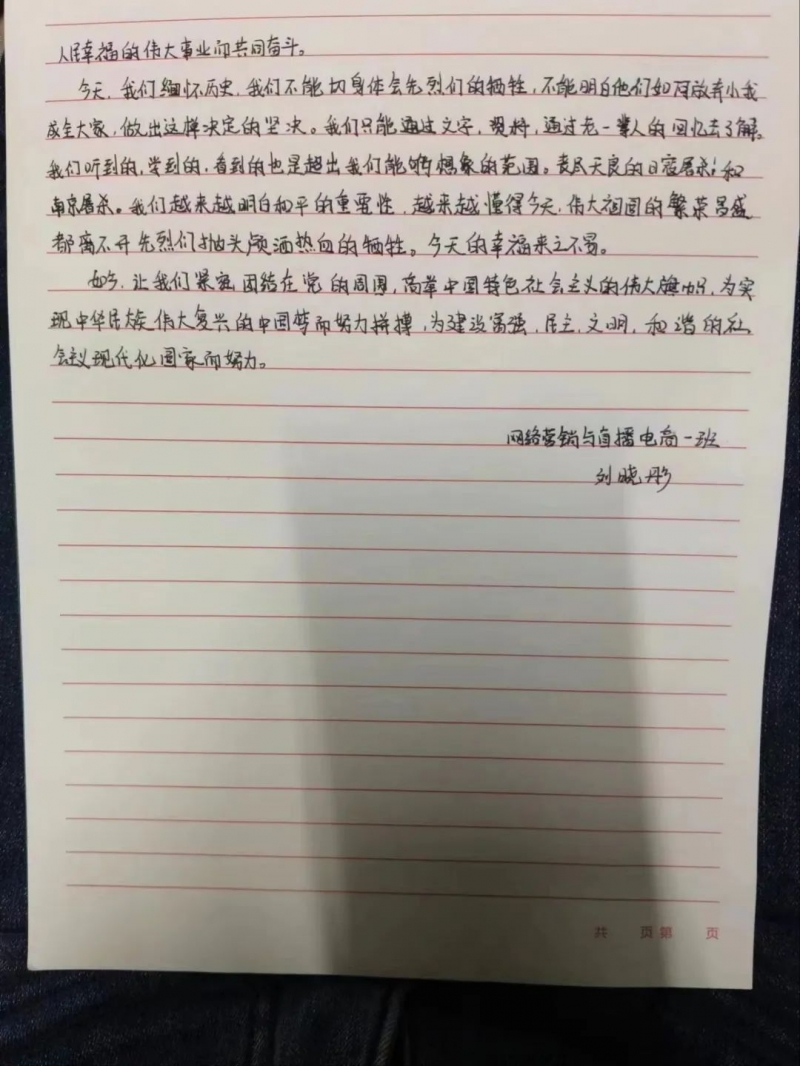 人民幸福的伟大事业而共同奋斗。
今天,我们缅怀历史,我们不能切身体会先烈们的牺牲,不能明白他们如何放弃小我
成全大家,做出这样决定的坚决。我们只能通过文字,影像,通过老一辈人的回忆去了解。
我们听到的,学到的,看到的也是超出我们能够想象的范围。丧尽天良的日寇屠杀!和
南京屠杀。我们越来越明白和平的重要性,越来越懂得今天,伟大祖国的繁荣昌盛
都离不开先烈们抛头颅洒热血的牺牲。今天的幸福来之不易。
如今,让我们紧密团结在党的周围,高举中国特色社会主义的伟大旗帜,为实
现中华民族伟大复兴的中国梦而努力拼搏,为建设富强,民主,文明,和谐的社
会主义现代化国家而努力。
网络营销与直播电商一班
刘晓彤
共 页第 页